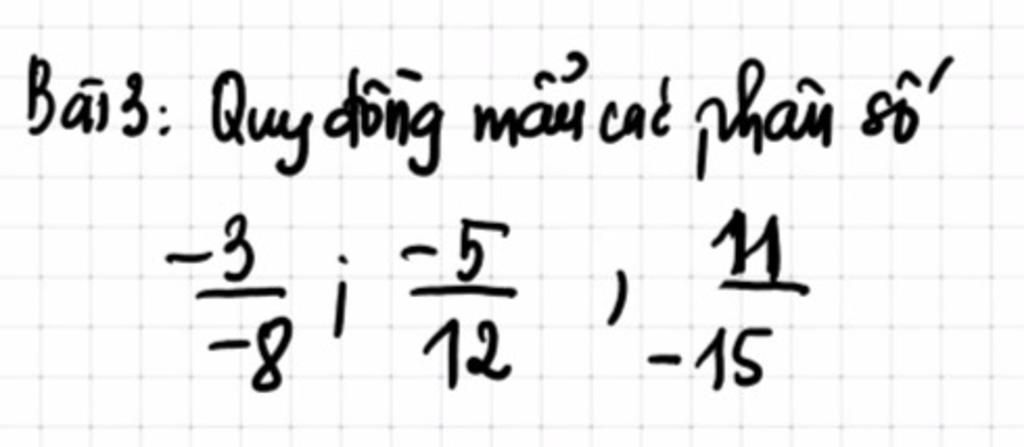 Bài 3: Quy đồng mẫu các phân số
-3/-8 ; -5/12 , 11/-15